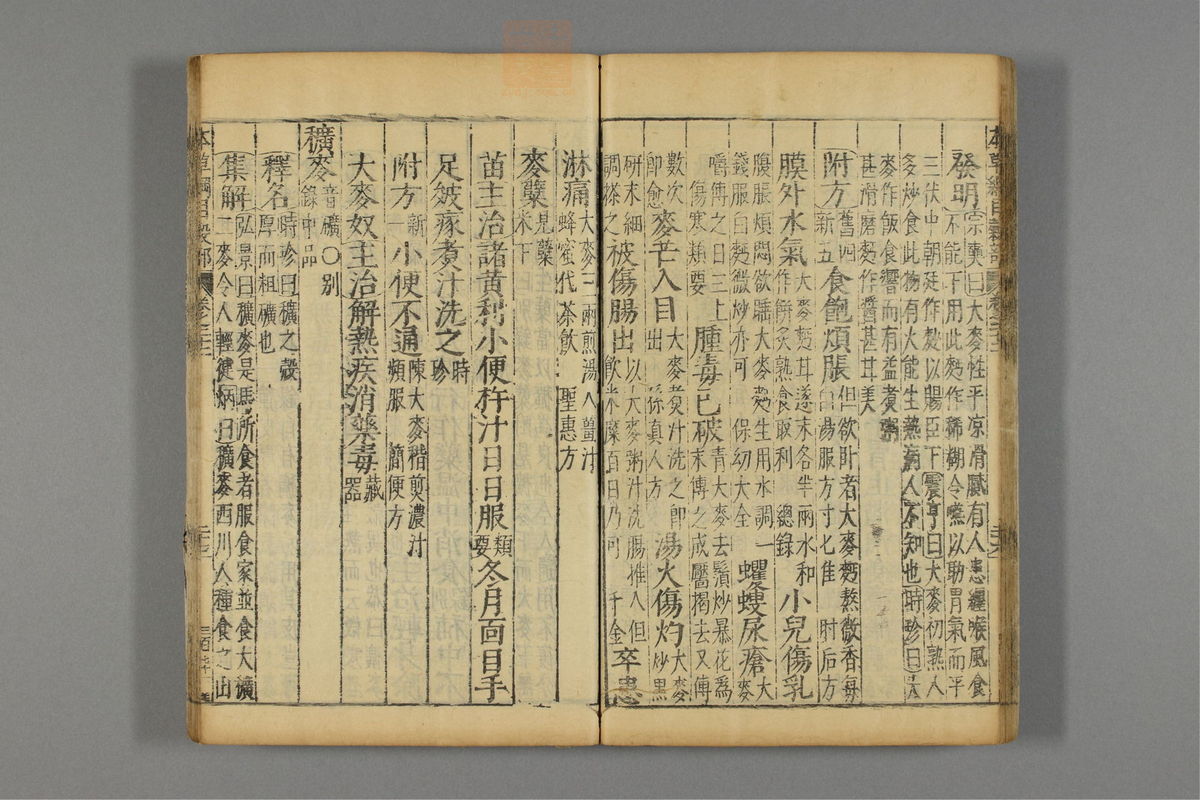 發明宗奭曰大麥性平凉滑膩有人患纏喉風食
不能下用此麪作稀糊令嚥以助胃氣而平
三伏中朝廷作麨以賜臣下震亨曰大麥初熟人
多炒食此物有火能生熱病人不知也時珍曰大
麥作飯食響而有益煮粥
甚滑磨麪作醬甚甘美
附方舊四新五食飽煩脹但欲卧者大麥麪熬微香每
白湯服方寸匕佳 肘后方
膜外水氣大麥麪甘遂末各半兩水和
作餅炙熟食取利 總錄小兒傷乳
腹脹煩悶欲睡大麥麪生用水調一
錢服白麪微炒亦可 保幼大全蠼螋尿瘡大麥
嚼傅之日三上
傷寒類要腫毒已破青大麥去鬚炒暴花爲
末傅之成靨揭去又傅
數次
即愈麥芒入目大麥煮汁洗之即
出 孫真人方湯火傷灼大麥
炒黑
研末細
調搽之被傷腸出以大麥粥汁洗腸推入但
飲米糜百日乃可 千金卒患
淋痛大麥三兩煎湯入薑汁
蜂蜜代茶飲 聖惠方
麥蘖見蘖
米下
苗主治諸黄利小便杵汁日日服類要冬月面目手
足皴瘃煮汁洗之時珍
附方新一小便不通陳大麥稭煎濃汁
頻服 簡便方
大麥奴主治解熱疾消藥毒藏器
穬麥音礦〇别
錄中品
釋名時珍曰穬之殼
厚而粗礦也
集解弘景曰穬麥是馬所食者服食家並食大穬
二麥令人輕健炳曰穬麥西川人種食之山